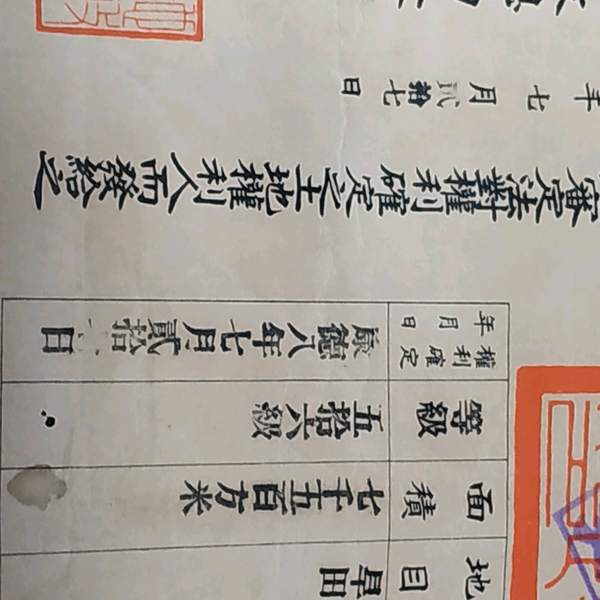 地目 旱田
面積 七千五百方米
等級 五拾六級
權利確定
年月日 康德八年七月貳拾 日
審定法對權利確定之土地權利人而發給之
年七月貳拾七日